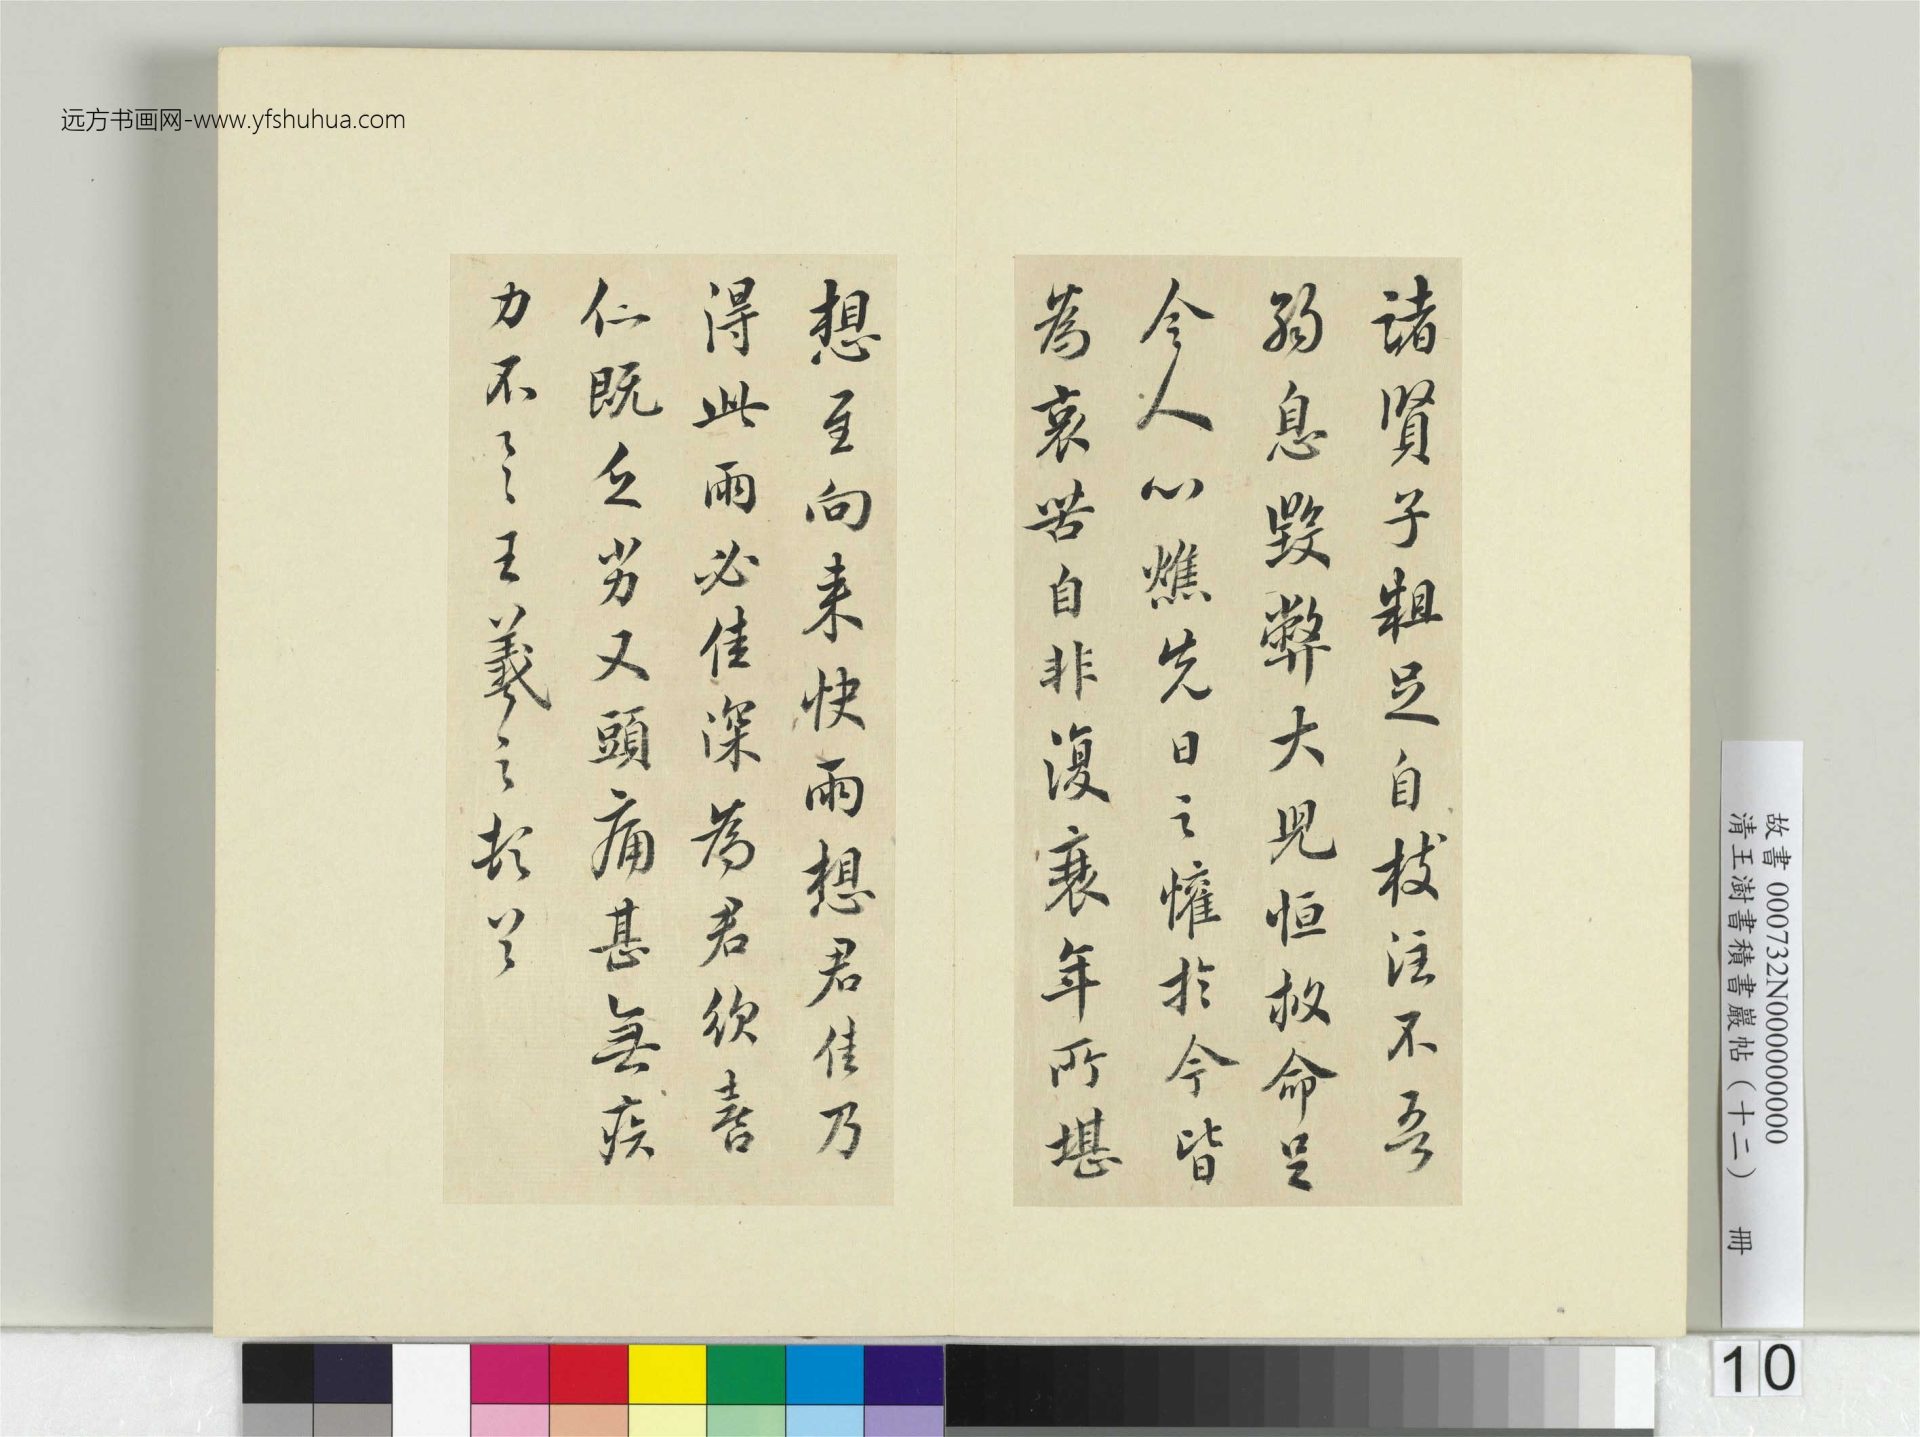 远方书画网-www.yfshuhua.com
諸賢子粗足自枝注不吾
弱息毀弊大児恒救命呈
今人心燋先日之懽於今皆
為哀苦自非復衰年所堪
想至向来快雨想君佳乃
得此雨必佳深為君欣喜
仁既乏劣又頭痛甚無疾
力不具王羲之頓首
故書 000732N000000000
清王澍書積書巖帖(十二) 冊
10